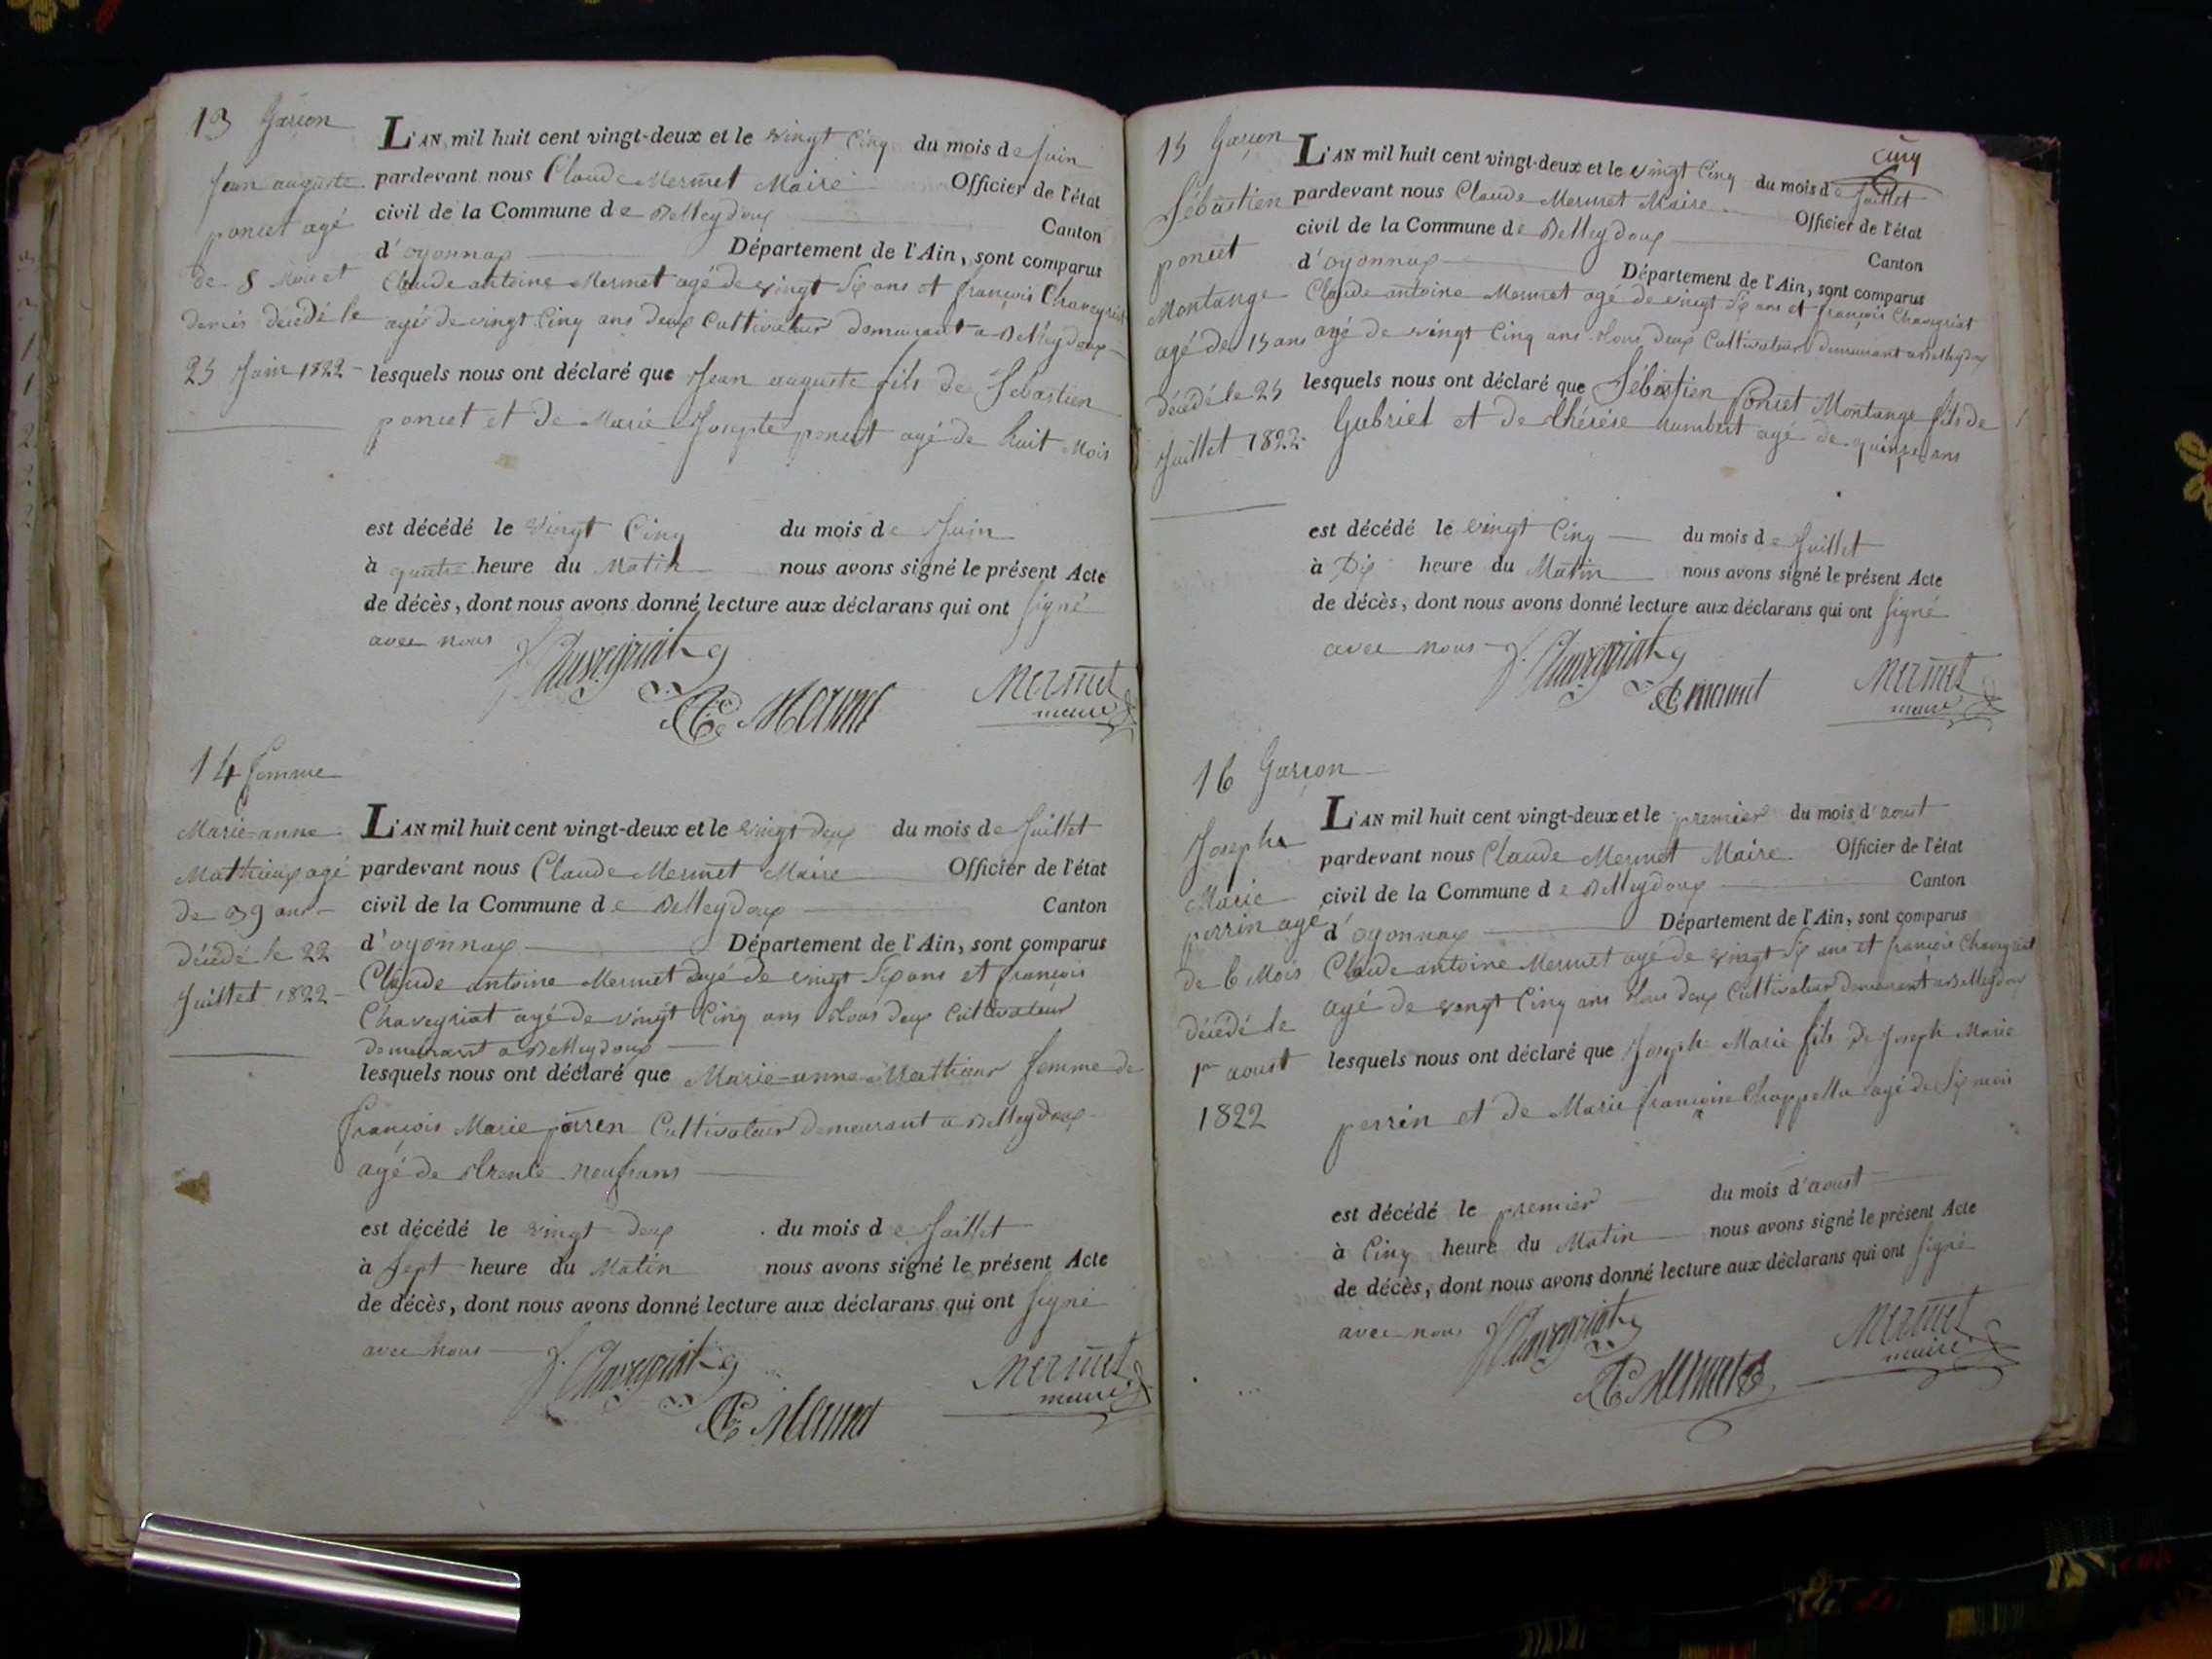 13 Garçon
Jean auguste
poncet agé
de 8 Mois et
demis décédé le
25 Juin 1822
L'AN mil huit cent vingt-deux et le vingt Cinq du mois de Juin
pardevant nous Claude Mermet Maire Officier de l'état
civil de la Commune de Belleydoux Canton
d'oyonnax Département de l'Ain, sont comparus
Claude antoine Mermet agé de vingt Six ans et françois Chaveyriat
agé de vingt Cinq ans deux Cultivateur demeurant a Belleydoux
lesquels nous ont déclaré que Jean auguste fils de Sébastien
poncet et de Marie Josephte poncet agé de huit Mois
est décédé le vingt Cinq du mois de Juin
à quatre heure du Matin nous avons signé le présent Acte
de décès, dont nous avons donné lecture aux déclarans qui ont signé
avec nous
f. Chaveyriat
C Mermet
Mermet
maire
14 femme
Marie-anne
Mathieux agé
de 39 ans
décédé le 22
Juillet 1822
L'AN mil huit cent vingt-deux et le vingt deux du mois de Juillet
pardevant nous Claude Mermet Maire Officier de l'état
civil de la Commune de Belleydoux Canton
d'oyonnax Département de l'Ain, sont comparus
Claude antoine Mermet agé de vingt Six ans et françois
Chaveyriat agé de vingt Cinq ans tous deux Cultivateur
demeurant a Belleydoux
lesquels nous ont déclaré que Marie-anne Mathieux femme de
françois Marie Cultivateur demeurant a Belleydoux
agé de trente neuf ans
est décédé le vingt deux du mois de Juillet
à Sept heure du Matin nous avons signé le présent Acte
de décès, dont nous avons donné lecture aux déclarans qui ont signé
avec nous
f. Chaveyriat
C Mermet
Mermet
maire
Cinq
15 Garçon
Sébastien
poncet
Montange
agé de 15 ans
décédé le 25
Juillet 1822
L'AN mil huit cent vingt-deux et le vingt Cinq du mois de Juillet
pardevant nous Claude Mermet Maire Officier de l'état
civil de la Commune de Belleydoux Canton
d'oyonnax Département de l'Ain, sont comparus
Claude antoine Mermet agé de vingt Six ans et françois Chaveyriat
agé de vingt Cinq ans tous deux Cultivateur demeurant a Belleydoux
lesquels nous ont déclaré que Sébastien Poncet Montange fils de
Gabriel et de thérèse humbert agé de quinze ans
est décédé le vingt Cinq du mois de Juillet
à Dix heure du Matin nous avons signé le présent Acte
de décès, dont nous avons donné lecture aux déclarans qui ont signé
avec nous
f. Chaveyriat
C mermet
Mermet
maire
16 Garçon
Joseph
Marie
perrin agé
de 6 Mois
décédé le
1er aoust
1822
L'AN mil huit cent vingt-deux et le premier du mois d'aoust
pardevant nous Claude Mermet Maire Officier de l'état
civil de la Commune de Belleydoux Canton
d'oyonnax Département de l'Ain, sont comparus
Claude antoine Mermet agé de vingt Six ans et françois Chaveyriat
agé de vingt Cinq ans tous deux Cultivateur demeurant a Belleydoux
lesquels nous ont déclaré que Joseph Marie fils de Joseph Marie
perrin et de Marie françoise Chappellu agé de Six mois
est décédé le premier du mois d'aoust
à Cinq heure du Matin nous avons signé le présent Acte
de décès, dont nous avons donné lecture aux déclarans qui ont signé
avec nous
f Chaveyriat
C Mermet
Mermet
maire